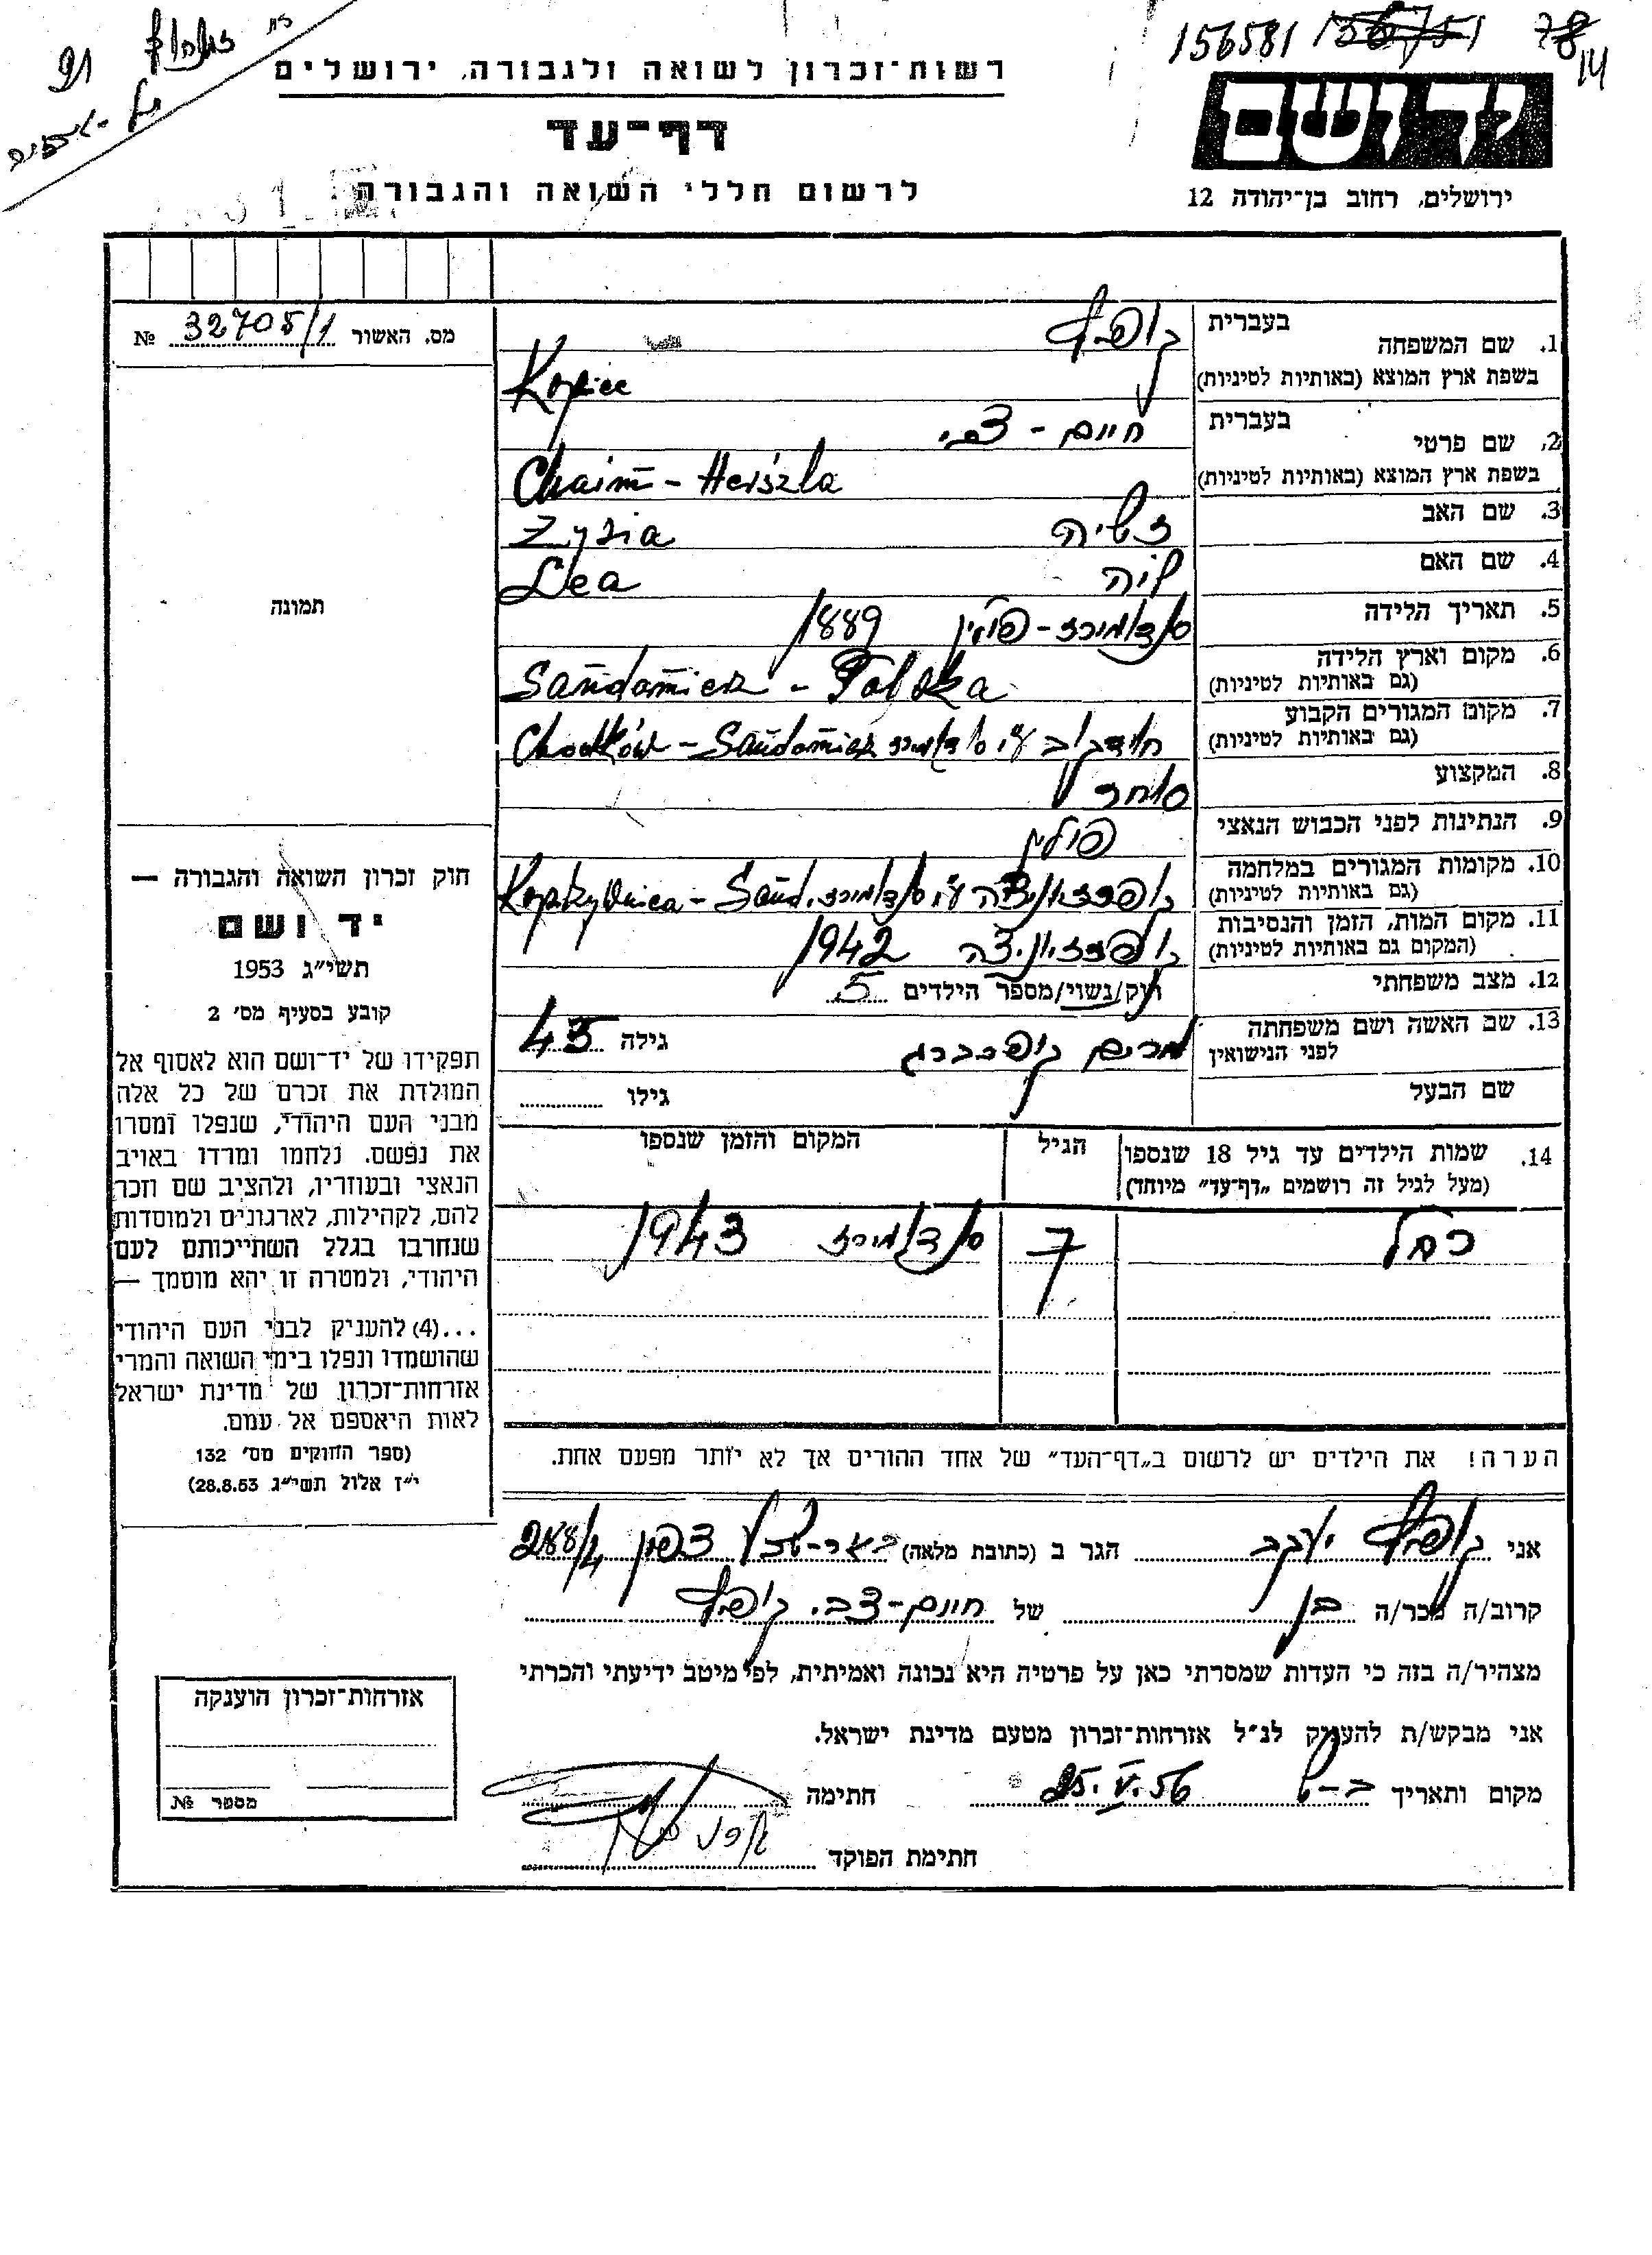 156581 156751 78
14
91
רשות־זכרון לשואה ולגבורה, ירושלים
דף־עד
לרשום חללי השואה והגבורה
יד ושם
ירושלים, רחוב בן־יהודה 12
מס. האשור 32705/1 №
תמונה
1. שם המשפחה
בעברית קופיץ
בשפת ארץ המוצא (באותיות לטיניות) Kopiec
2. שם פרטי
בעברית חיים - צבי
בשפת ארץ המוצא (באותיות לטיניות) Chaim - Herszla
3. שם האב זישיה Zysia
4. שם האם לאה Lea
5. תאריך הלידה סנדומירז - פולין 1889
6. מקום וארץ הלידה
(גם באותיות לטיניות) Sandomierz - Polska
7. מקום המגורים הקבוע
(גם באותיות לטיניות) ע״י סנדומירז Chodków - Sandomierz
8. המקצוע סוחר
9. הנתינות לפני הכבוש הנאצי פולין
10. מקומות המגורים במלחמה
(גם באותיות לטיניות) קופרזיבניצה ע״י סנדומירז. Koprzywnica - Sand.
11. מקום המות, הזמן והנסיבות
(המקום גם באותיות לטיניות) קופרזיבניצה 1942
12. מצב משפחתי רווק/נשוי/מספר הילדים 5
13. שם האשה ושם משפחתה
לפני הנישואין מרים קופרברג גילה 43
שם הבעל גילו
14. שמות הילדים עד גיל 18 שנספו
(מעל לגיל זה רושמים „דף־עד״ מיוחד)
הגיל
המקום והזמן שנספו
רחל 7 סנדומירז 1943
הערה! את הילדים יש לרשום ב„דף־העד״ של אחד ההורים אך לא יותר מפעם אחת.
אני קופיץ יעקב הגר ב (כתובת מלאה) באר-שבע צפון 288/4
קרוב/ה מכר/ה בן של חיים-צבי קופיץ
מצהיר/ה בזה כי העדות שמסרתי כאן על פרטיה היא נכונה ואמיתית, לפי מיטב ידיעתי והכרתי
אני מבקש/ת להעניק לנ״ל אזרחות־זכרון מטעם מדינת ישראל.
מקום ותאריך ב-ש 25.V.56 חתימה
חתימת הפוקד
חוק זכרון השואה והגבורה —
יד ושם
תשי״ג 1953
קובע בסעיף מס׳ 2
תפקידו של יד־ושם הוא לאסוף אל
המולדת את זכרם של כל אלה
מבני העם היהודי, שנפלו ומסרו
את נפשם. נלחמו ומרדו באויב
הנאצי ובעוזריו, ולהציב שם וזכר
להם, לקהילות, לארגונים ולמוסדות
שנחרבו בגלל השתייכותם לעם
היהודי, ולמטרה זו יהא מוסמך —
...(4) להעניק לבני העם היהודי
שהושמדו ונפלו בימי השואה והמרי
אזרחות־זכרון של מדינת ישראל
לאות היאספם אל עמם.
(ספר החוקים מס׳ 132
י״ז אלול תשי״ג 28.8.53)
אזרחות־זכרון הוענקה
מספר №